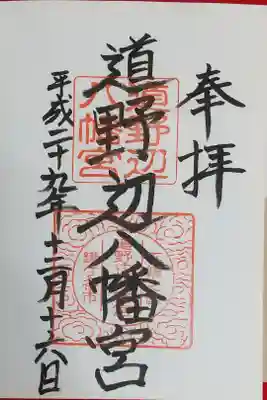 奉拝
道野辺八幡宮
平成二十九年十二月十六日
道野辺
八幡宮